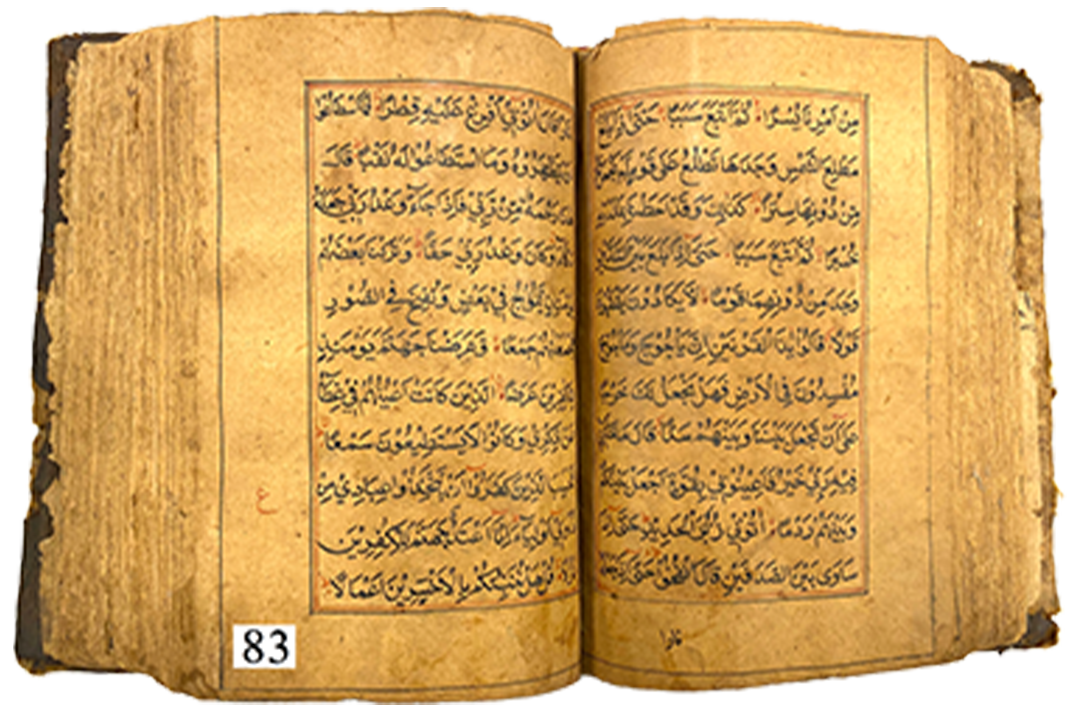 مِنْ اَمْرِنَا يُسْرًا ثُمَّ اَتْبَعَ سَبَبًا حَتّٰى اِذَا بَلَغَ
مَطْلِعَ الشَّمْسِ وَجَدَهَا تَطْلُعُ عَلٰى قَوْمٍ لَّمْ نَجْعَلْ
مِنْ دُونِهَا سِتْرًا كَذٰلِكَ وَقَدْ اَحَطْنَا بِمَا لَدَيْهِ
خُبْرًا ثُمَّ اَتْبَعَ سَبَبًا حَتّٰى اِذَا بَلَغَ بَيْنَ
وَجَدَ مِنْ دُوْنِهِمَا قَوْمًا لَّا يَكَادُوْنَ يَفْقَهُوْنَ
قَوْلًا قَالُوْا يٰذَا الْقَرْنَيْنِ اِنَّ يَاْجُوْجَ وَمَاْجُوْجَ
مُفْسِدُوْنَ فِي الْاَرْضِ فَهَلْ نَجْعَلُ لَكَ خَرْجًا
عَلٰى اَنْ تَجْعَلَ بَيْنَنَا وَبَيْنَهُمْ سَدًّا قَالَ مَا مَكَّنِّيْ
فِيْهِ رَبِّيْ خَيْرٌ فَاَعِيْنُوْنِيْ بِقُوَّةٍ اَجْعَلْ بَيْنَكُمْ
وَبَيْنَهُمْ رَدْمًا اٰتُوْنِيْ زُبَرَ الْحَدِيْدِ حَتّٰى اِذَا
سَاوٰى بَيْنَ الصَّدَفَيْنِ قَالَ انْفُخُوْا حَتّٰى اِذَا جَعَلَهُ
قَالَ اٰتُوْنِيْ اُفْرِغْ عَلَيْهِ قِطْرًا فَمَا اسْطَاعُوْا
اَنْ يَّظْهَرُوْهُ وَمَا اسْتَطَاعُوْا لَهُ نَقْبًا قَالَ
هٰذَا رَحْمَةٌ مِّنْ رَّبِّيْ فَاِذَا جَاءَ وَعْدُ رَبِّيْ جَعَلَهُ
دَكَّاءَ وَكَانَ وَعْدُ رَبِّيْ حَقًّا وَتَرَكْنَا بَعْضَهُمْ
يَوْمَئِذٍ يَّمُوْجُ فِيْ بَعْضٍ وَّنُفِخَ فِي الصُّوْرِ
فَجَمَعْنٰهُمْ جَمْعًا وَّعَرَضْنَا جَهَنَّمَ يَوْمَئِذٍ
لِّلْكٰفِرِيْنَ عَرْضًا الَّذِيْنَ كَانَتْ اَعْيُنُهُمْ فِيْ غِطَاءٍ
عَنْ ذِكْرِيْ وَكَانُوْا لَا يَسْتَطِيْعُوْنَ سَمْعًا
اَفَحَسِبَ الَّذِيْنَ كَفَرُوْا اَنْ يَّتَّخِذُوْا عِبَادِيْ مِنْ
دُوْنِيْ اَوْلِيَاءَ اِنَّا اَعْتَدْنَا جَهَنَّمَ لِلْكٰفِرِيْنَ
نُزُلًا قُلْ هَلْ نُنَبِّئُكُمْ بِالْاَخْسَرِيْنَ اَعْمَالًا
ع
83